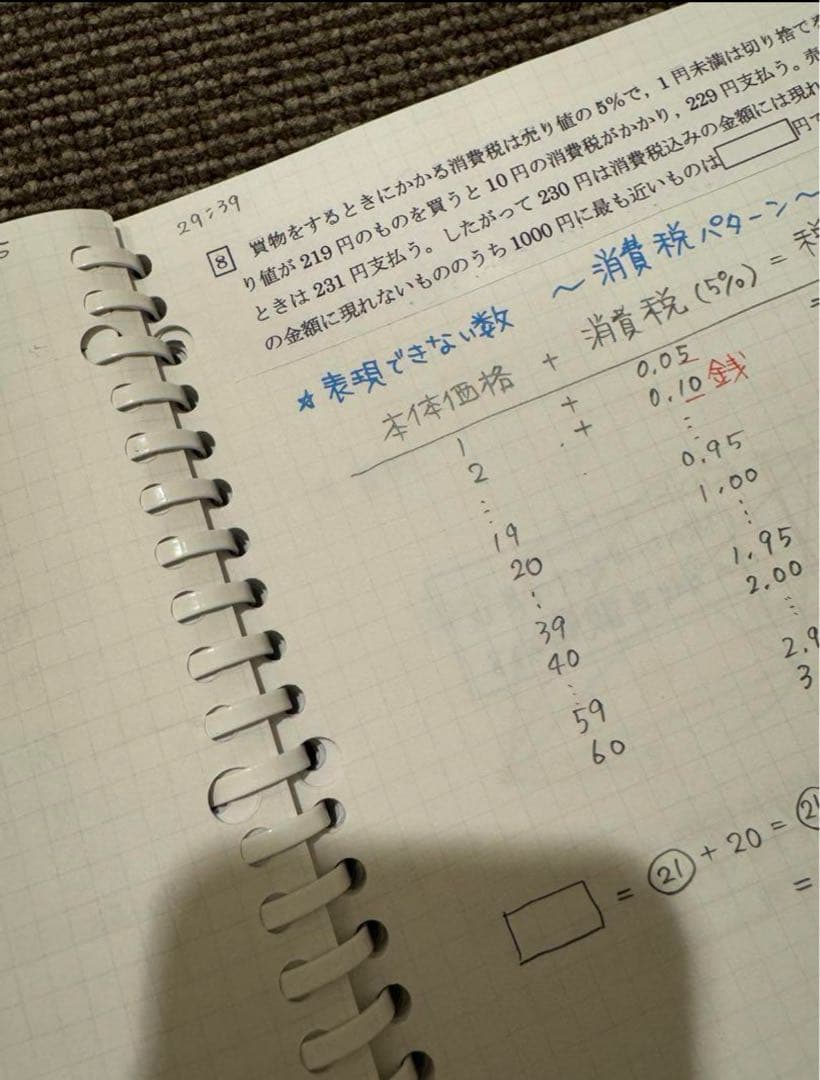 5
29:39
8 買物をするときにかかる消費税は売り値の5%で，1円未満は切り捨て
り値が219円のものを買うと10円の消費税がかかり，229円支払う。売
ときは231円支払う。したがって230円は消費税込みの金額には現れ
の金額に現れないもののうち1000円に最も近いものは 円で
～消費税パターン～
☆表現できない数
本体価格 + 消費税(5%) = 税
=
1 + 0.05
2 + 0.10 銭
⋮ ⋮
19 0.95
20 1.00
⋮ ⋮
39 1.95
40 2.00
⋮ ⋮
59 2.9
60 3
□ = ㉑ + 20 = ㉑
=